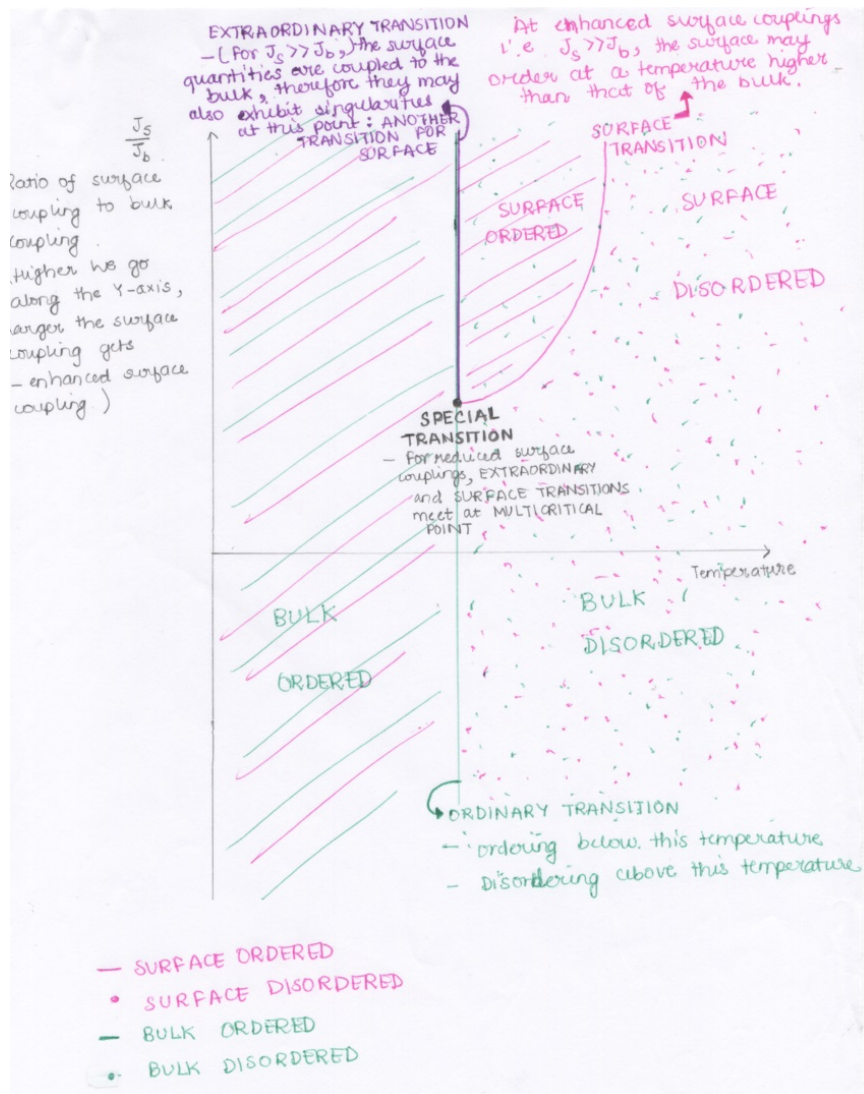 EXTRAORDINARY TRANSITION
- (For Js >> Jb,) the surface
quantities are coupled to the
bulk, therefore they may
also exhibit singularities
at this point: ANOTHER
TRANSITION FOR
SURFACE
At enhanced surface couplings
i.e Js >> Jb, the surface may
order at a temperature higher
than that of the bulk.
SURFACE
TRANSITION
Js
Jb
Ratio of surface
coupling to bulk
coupling
Higher we go
along the Y-axis,
larger the surface
coupling gets
- enhanced surface
coupling)
SURFACE
ORDERED
SURFACE
DISORDERED
SPECIAL
TRANSITION
- For reduced surface
couplings, EXTRAORDINARY
and SURFACE TRANSITIONS
meet at MULTICRITICAL
POINT
Temperature
BULK
ORDERED
BULK
DISORDERED
ORDINARY TRANSITION
- ordering below this temperature
- Disordering above this temperature
— SURFACE ORDERED
• SURFACE DISORDERED
— BULK ORDERED
• BULK DISORDERED